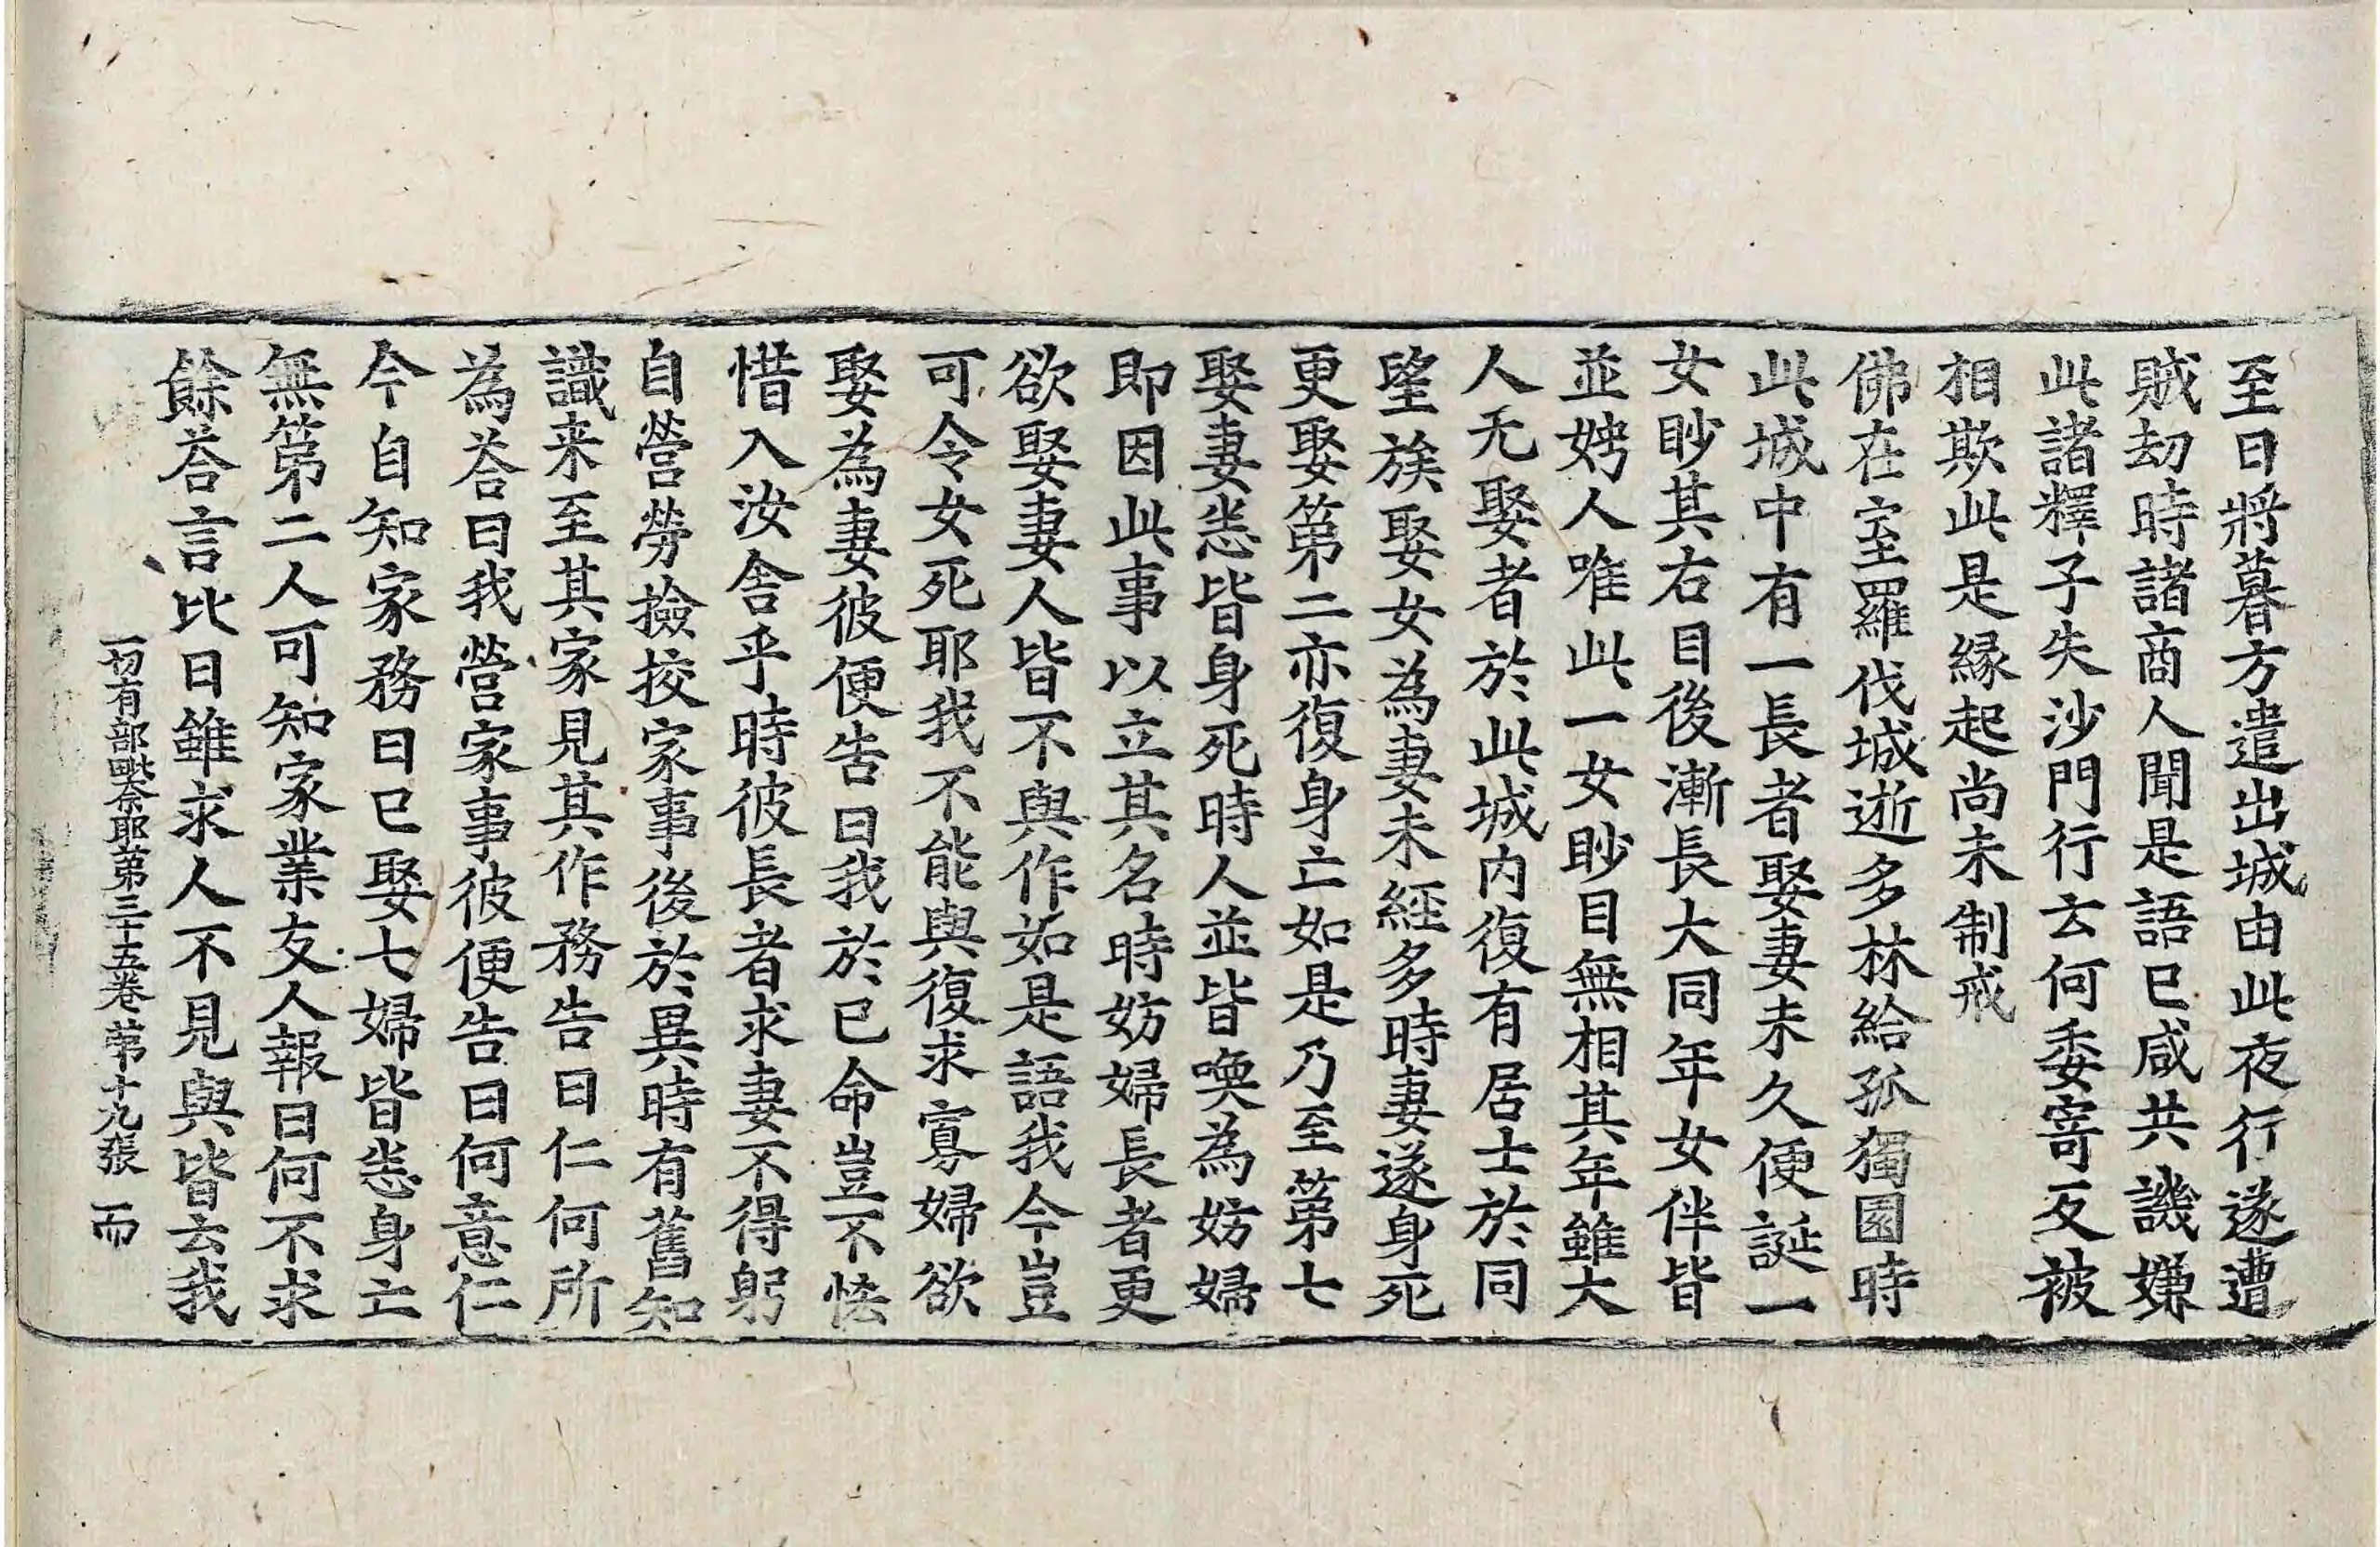 至日將暮方遣出城由此夜行遂遭
賊劫時諸商人聞是語已咸共譏嫌
此諸釋子失沙門行云何委寄反被
相欺此是縁起尚未制戒
佛在室羅伐城逝多林給孤獨園時
此城中有一長者娶妻未久便誕一
女眇其右目後漸長大同年女伴皆
並娉人唯此一女眇目無相其年雖大
人无娶者於此城内復有居士於同
望族娶女為妻未經多時妻遂身死
更娶第二亦復身亡如是乃至第七
娶妻悉皆身死時人並皆喚為妨婦
即因此事以立其名時妨婦長者更
欲娶妻人皆不與作如是語我今豈
可令女死耶我不能與復求寡婦欲
娶為妻彼便告曰我於已命豈不恡
惜入汝舍乎時彼長者求妻不得躬
自營勞撿挍家事後於異時有舊知
識来至其家見其作務告曰仁何所
為荅曰我營家事彼便告曰何意仁
今自知家務曰已娶七婦皆悉身亡
無第二人可知家業友人報曰何不求
餘荅言比日雖求人不見與皆云我
一切有部毗奈耶第三十五卷 第十九張 而